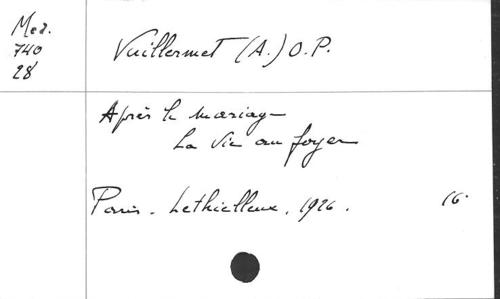 Med.
740
28
Vuillermet (A.) O.P.
Après le mariage
La vie au foyer
Paris. Lethielleux, 1926. 16°